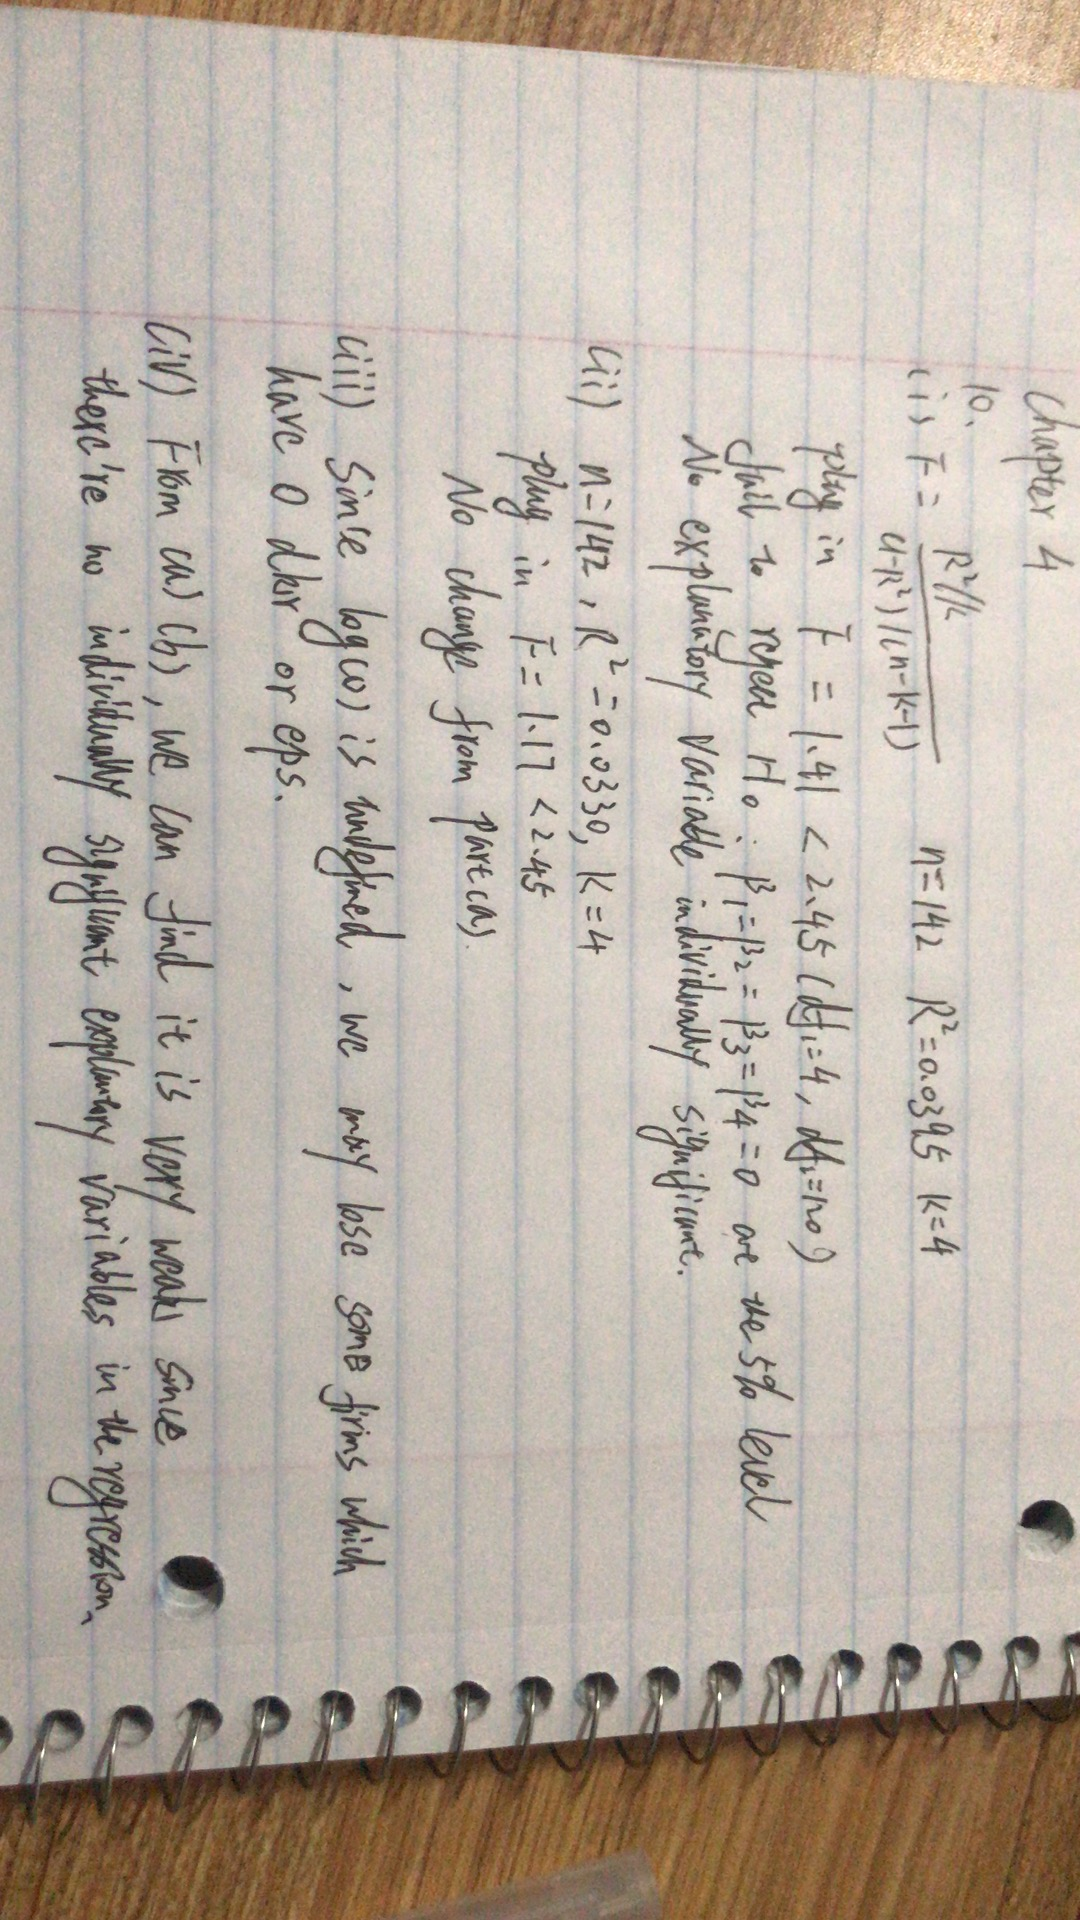 Chapter 4
10.
(i) F = R²/k / (1-R²)/(n-k-1)    n=142  R²=0.0395  k=4
plug in F = 1.41 < 2.45 (df₁=4, df₂=120)
fail to reject H₀ : β₁=β₂=β₃=β₄=0 are the 5% level
No explanatory variable individually significant.
(ii) n=142, R²=0.0330, k=4
plug in F = 1.17 < 2.45
No change from part(a).
(iii) Since log(0) is undefined, we may lose some firms which
have 0 dkr or eps.
(iv) From (a) (b), we can find it is very weak since
there're no individually significant explantary variables in the regression.